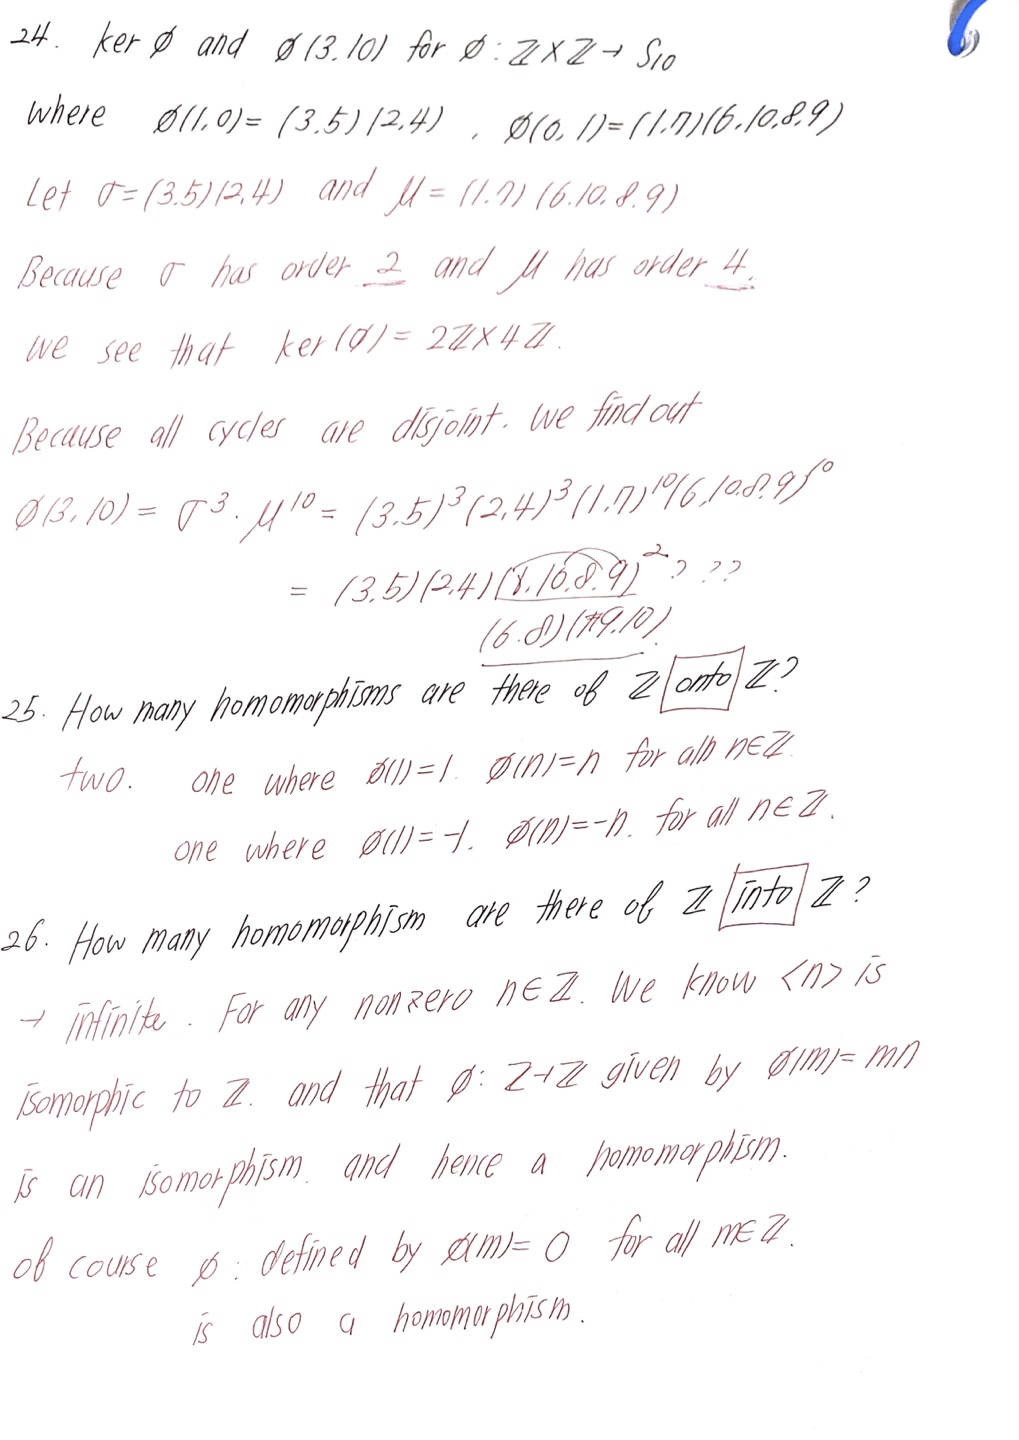 24. ker ø and ø(3.10) for ø: ℤ×ℤ → S10
where ø(1,0)= (3.5)(2,4) , ø(0,1)=(1.7)(6.10.8.9)
Let σ=(3.5)(2,4) and μ = (1.7)(6.10.8.9)
Because σ has order 2 and μ has order 4.
we see that ker(ø)= 2ℤ×4ℤ.
Because all cycles are disjoint. we find out
ø(3,10) = σ³.μ¹⁰ = (3.5)³(2,4)³(1.7)¹⁰(6,10.8.9)¹⁰
= (3.5)(2,4)(6.10.8.9)² ? ??
(6.8)(9.10)
25. How many homomorphisms are there of ℤ onto ℤ?
two. one where ø(1)=1. ø(n)=n for all n∈ℤ.
one where ø(1)=-1. ø(n)=-n. for all n∈ℤ.
26. How many homomorphism are there of ℤ into ℤ?
→ infinite. For any nonzero n∈ℤ. we know <n> is
isomorphic to ℤ. and that ø: ℤ→ℤ given by ø(m)= mn
is an isomorphism. and hence a homomorphism.
of course ø: defined by ø(m)= 0 for all m∈ℤ.
is also a homomorphism.